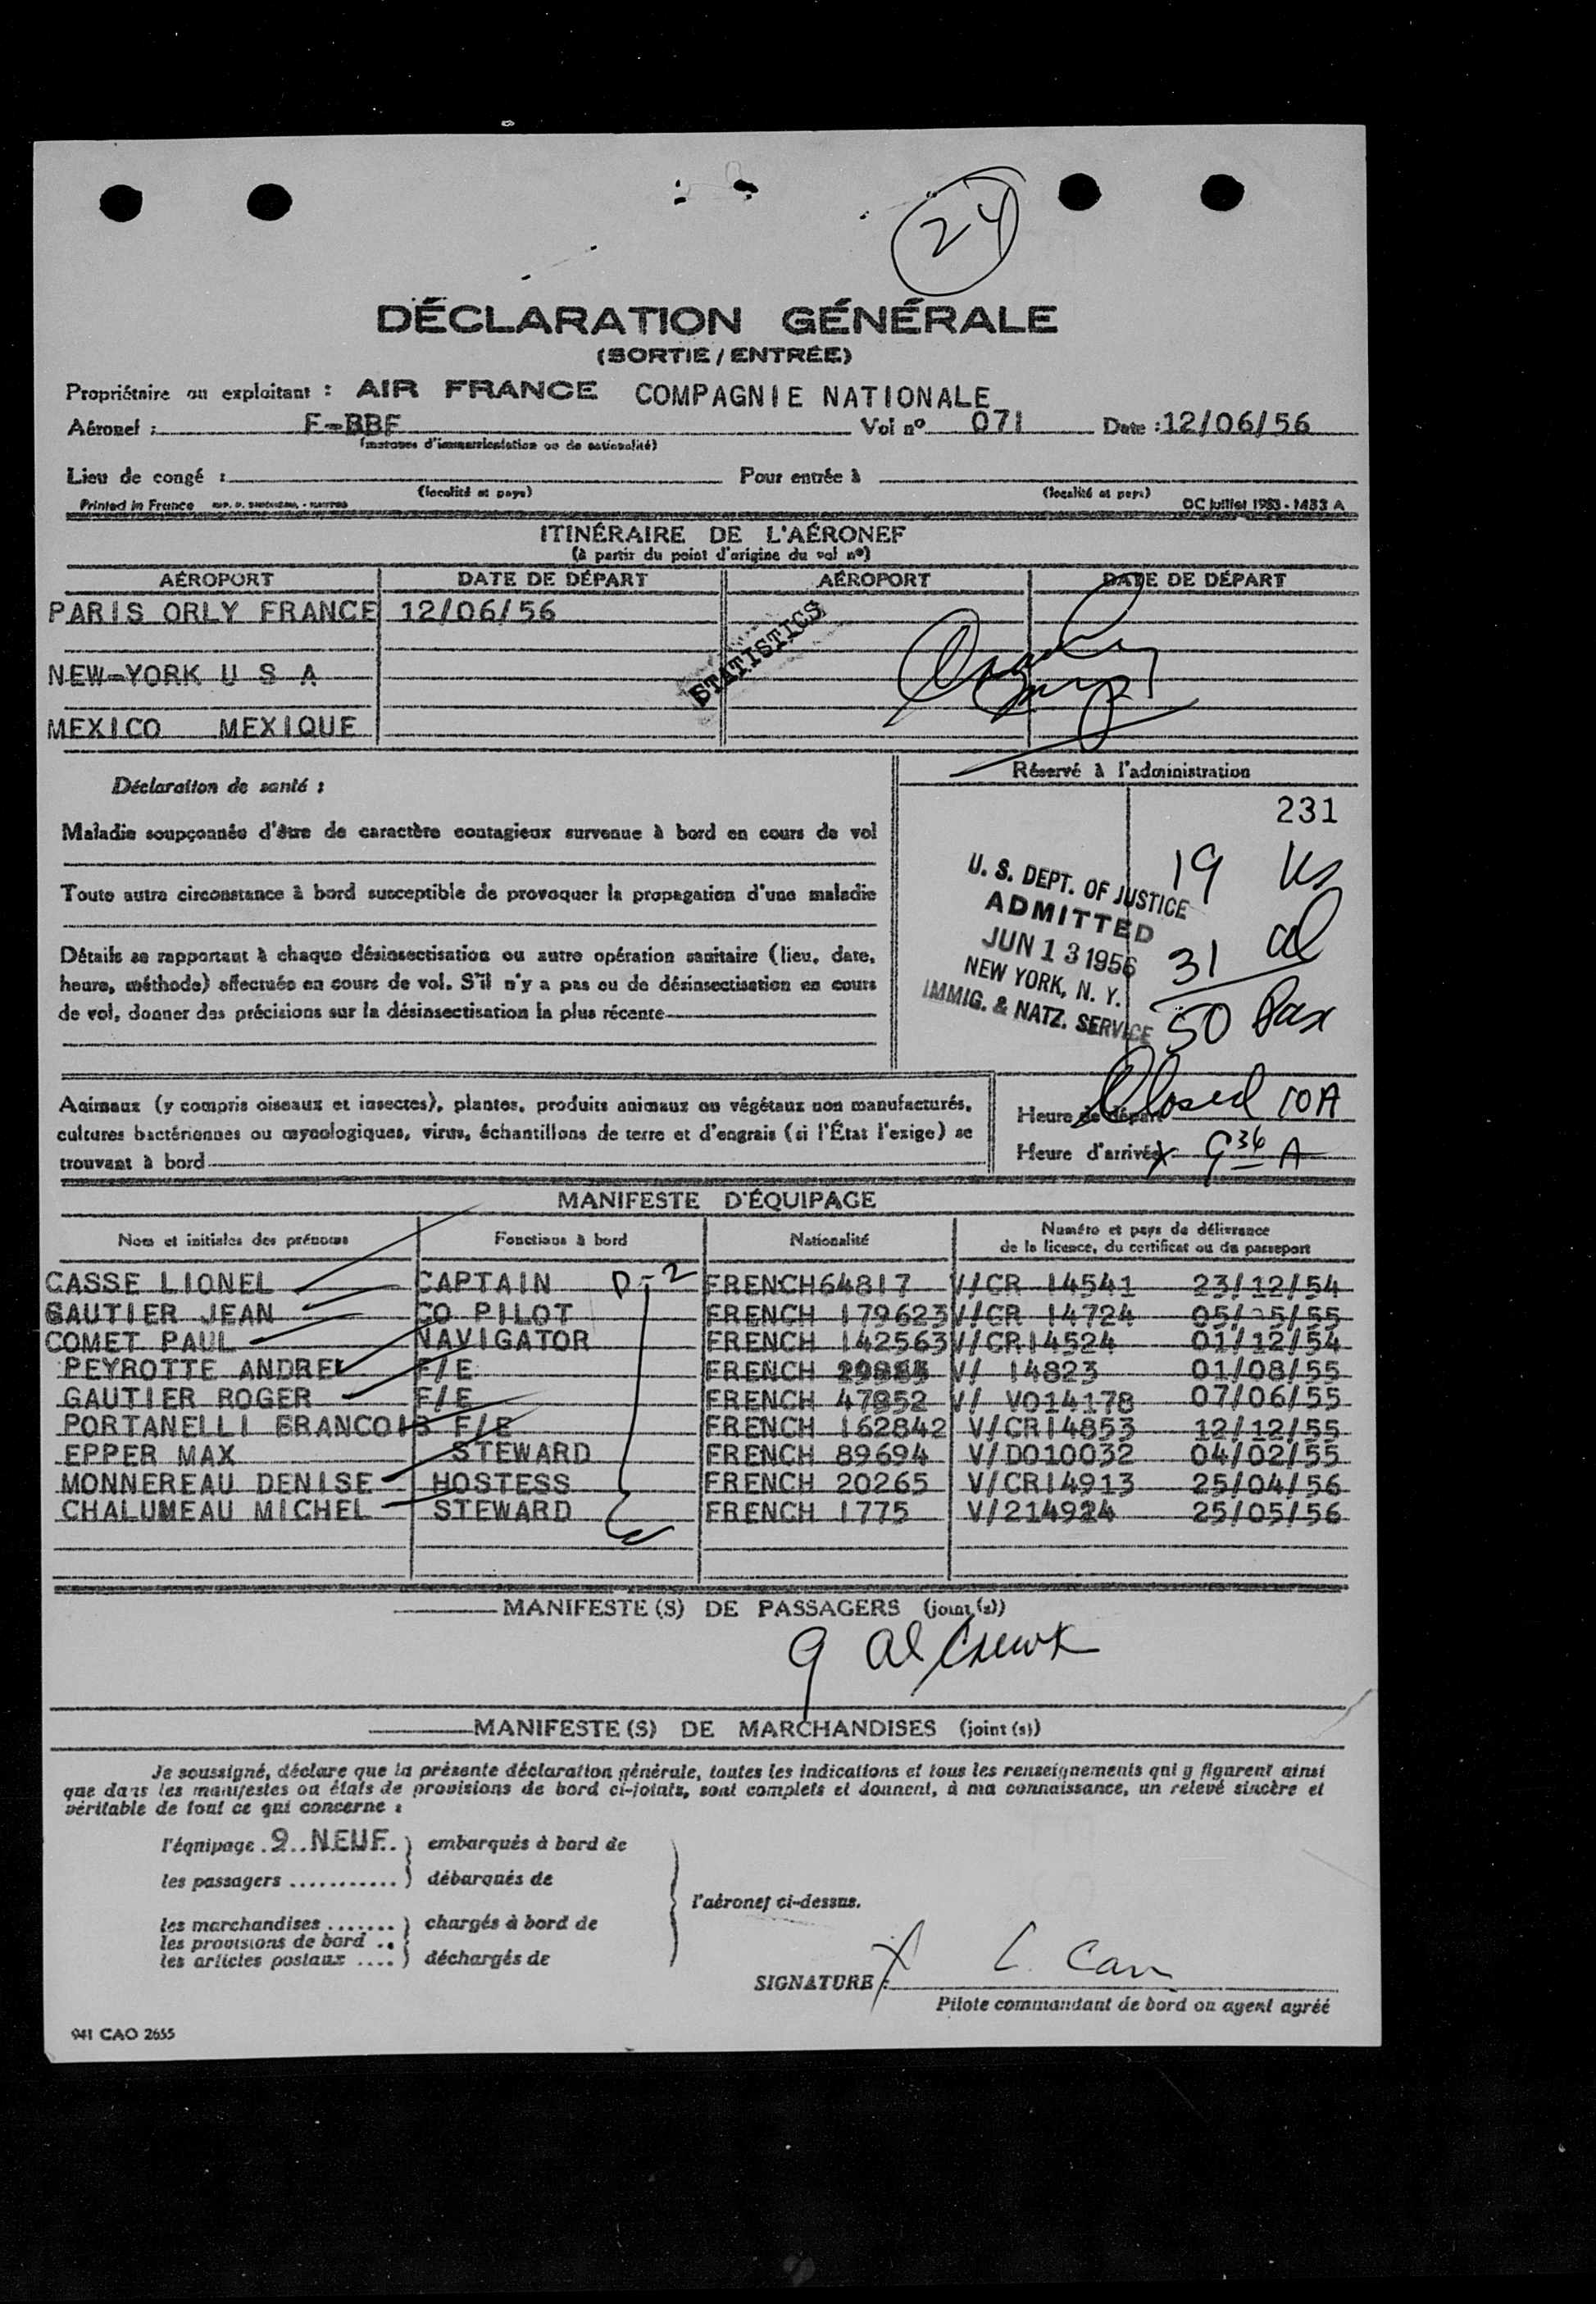 24
DÉCLARATION GÉNÉRALE
(SORTIE / ENTRÉE)
Propriétaire ou exploitant : AIR FRANCE COMPAGNIE NATIONALE
Aéronef : F-BBF Vol n° 071 Date : 12/06/56
(marques d'immatriculation ou de nationalité)
Lieu de congé : Pour entrée à
(localité et pays) (localité et pays)
Printed in France OC Juillet 1953 - 1453 A
ITINÉRAIRE DE L'AÉRONEF
(à partir du point d'origine du vol n°)
AÉROPORT DATE DE DÉPART AÉROPORT DATE DE DÉPART
PARIS ORLY FRANCE 12/06/56
STATISTICS
NEW-YORK U S A
MEXICO MEXIQUE
Déclaration de santé :
Réservé à l'administration
231
Maladie soupçonnée d'être de caractère contagieux survenue à bord en cours de vol
Toute autre circonstance à bord susceptible de provoquer la propagation d'une maladie
Détails se rapportant à chaque désinsectisation ou autre opération sanitaire (lieu, date,
heure, méthode) effectuée en cours de vol. S'il n'y a pas eu de désinsectisation en cours
de vol, donner des précisions sur la désinsectisation la plus récente
U. S. DEPT. OF JUSTICE
ADMITTED
JUN 13 1956
NEW YORK, N. Y.
IMMIG. & NATZ. SERVICE
19 us
31 al
50 Pax
Animaux (y compris oiseaux et insectes), plantes, produits animaux ou végétaux non manufacturés,
cultures bactériennes ou mycologiques, virus, échantillons de terre et d'engrais (si l'État l'exige) se
trouvant à bord
Heure de départ Closed 10A
Heure d'arrivée X 9 36 A
MANIFESTE D'ÉQUIPAGE
Nom et initiales des prénoms Fonctions à bord Nationalité Numéro et pays de délivrance
de la licence, du certificat ou du passeport
CASSE LIONEL CAPTAIN D-2 FRENCH 64817 V/CR 14541 23/12/54
GAUTIER JEAN CO PILOT FRENCH 179623 V/CR 14724
COMET PAUL NAVIGATOR FRENCH 142563 V/CR14524 01/12/54
PEYROTTE ANDRE F/E FRENCH V/ 14823 01/08/55
GAUTIER ROGER F/E FRENCH 47852 V/ V014178 07/06/55
PORTANELLI FRANCOIS F/E FRENCH 162842 V/CR14853 12/12/55
EPPER MAX STEWARD FRENCH 89694 V/D010032 04/02/55
MONNEREAU DENISE HOSTESS FRENCH 20265 V/CR14913 25/04/56
CHALUMEAU MICHEL STEWARD FRENCH 1775 V/214924 25/05/56
MANIFESTE (S) DE PASSAGERS (joint (s))
9 al crew
MANIFESTE (S) DE MARCHANDISES (joint (s))
Je soussigné, déclare que la présente déclaration générale, toutes les indications et tous les renseignements qui y figurent ainsi
que dans les manifestes ou états de provisions de bord ci-joints, sont complets et donnent, à ma connaissance, un relevé sincère et
véritable de tout ce qui concerne :
l'équipage . 9 .. NEUF. ) embarqués à bord de
les passagers ........... ) débarqués de
l'aéronef ci-dessus.
les marchandises ....... ) chargés à bord de
les provisions de bord ..
les articles postaux .... ) déchargés de
SIGNATURE : X
Pilote commandant de bord ou agent agréé
941 CAO 2655